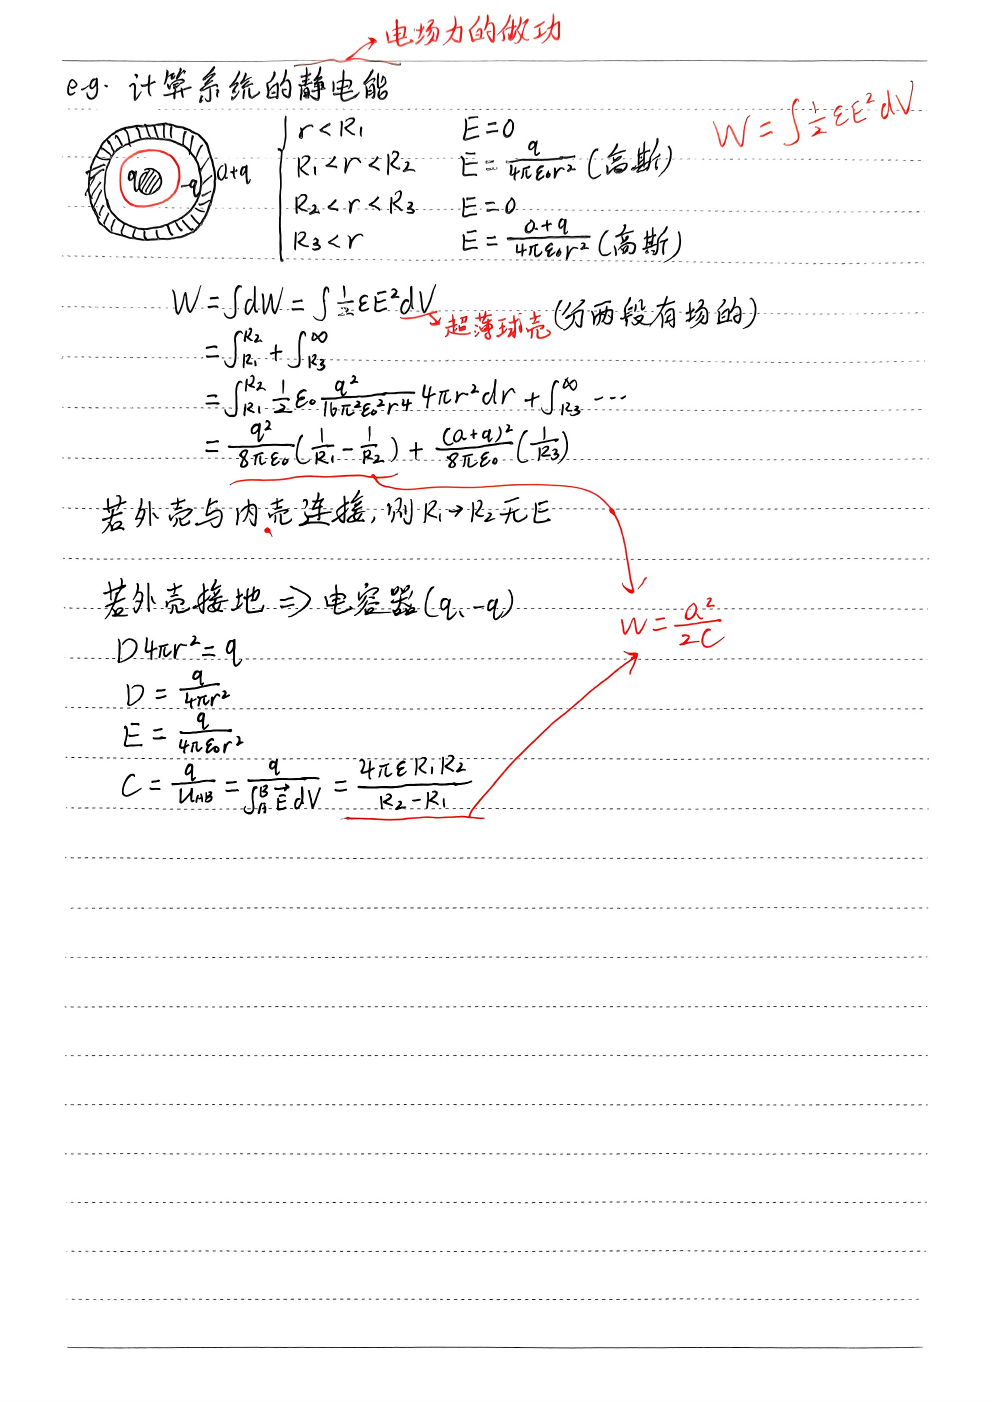 电场力的做功
e.g. 计算系统的静电能
W = ∫ 1/2 εE² dV
q -q Q+q
r < R₁ E = 0
R₁ < r < R₂ E = q/4πε₀r² (高斯)
R₂ < r < R₃ E = 0
R₃ < r E = Q+q/4πε₀r² (高斯)
W = ∫dW = ∫ 1/2 εE² dV (分两段有场的)
超薄球壳
= ∫_{R₁}^{R₂} + ∫_{R₃}^{∞}
= ∫_{R₁}^{R₂} 1/2 ε₀ q²/16π²ε₀²r⁴ 4πr²dr + ∫_{R₃}^{∞} ...
= q²/8πε₀ (1/R₁ - 1/R₂) + (Q+q)²/8πε₀ (1/R₃)
若外壳与内壳连接, 则 R₁→R₂ 无E
若外壳接地 => 电容器 (q、-q)
W = Q²/2C
D4πr² = q
D = q/4πr²
E = q/4πε₀r²
C = q/U_{AB} = q/∫_A^B E⃗ dV = 4πεR₁R₂/R₂-R₁